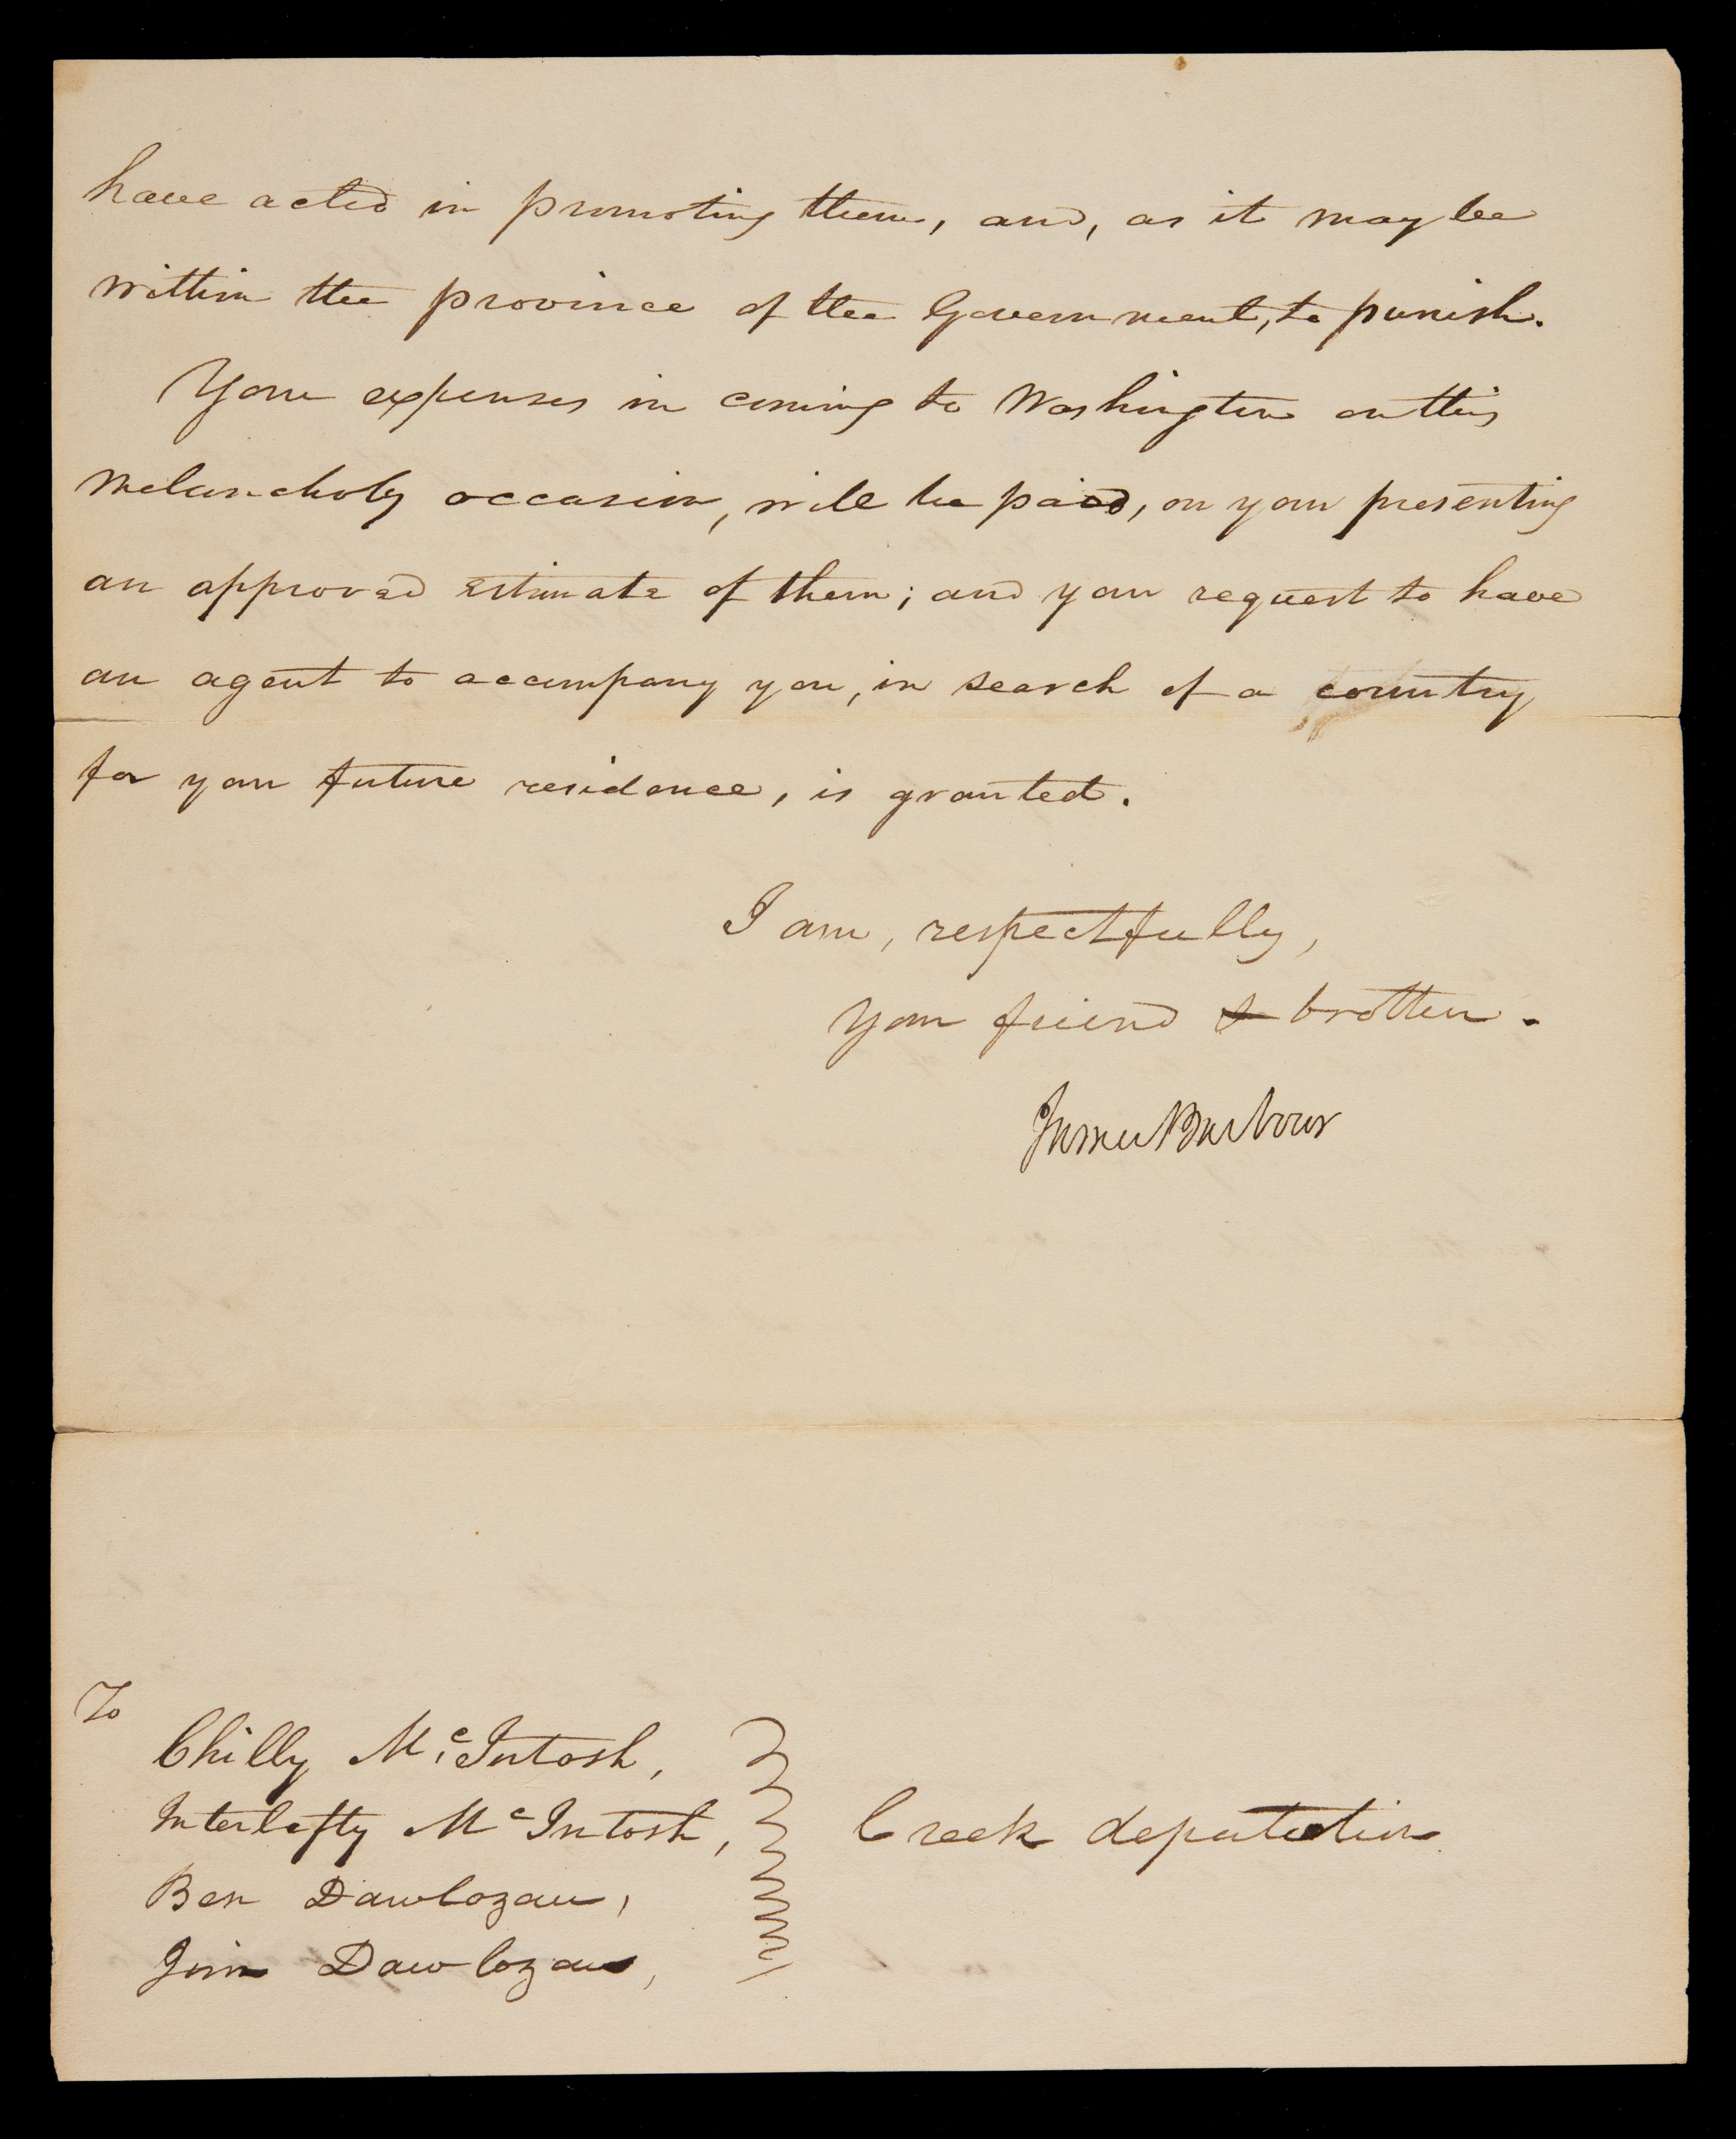 have acted in promoting them, and, as it may be
within the province of the Government, to punish.
Your expenses in coming to Washington on this
melancholy occasion, will be paid, on your presenting
an approved estimate of them; and your request to have
an agent to accompany you, in search of a country
for your future residence, is granted.
I am, respectfully,
Your friend & brother.
James Barbour
To
Chilly McIntosh,
Interlifty McIntosh,
Ben Dawlozau,
Jim Dawlozau,
Creek deputation